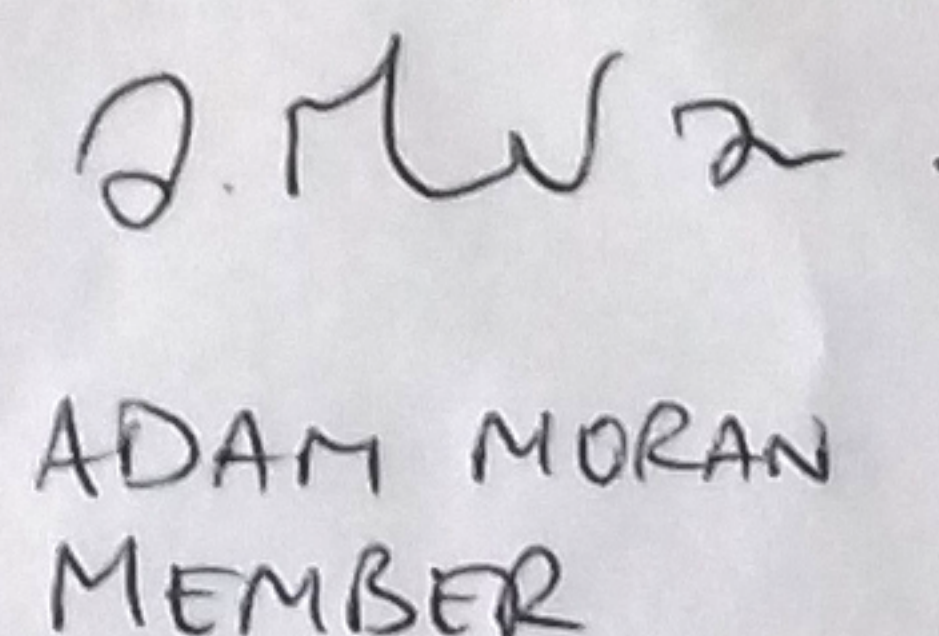 ADAM MORAN
MEMBER